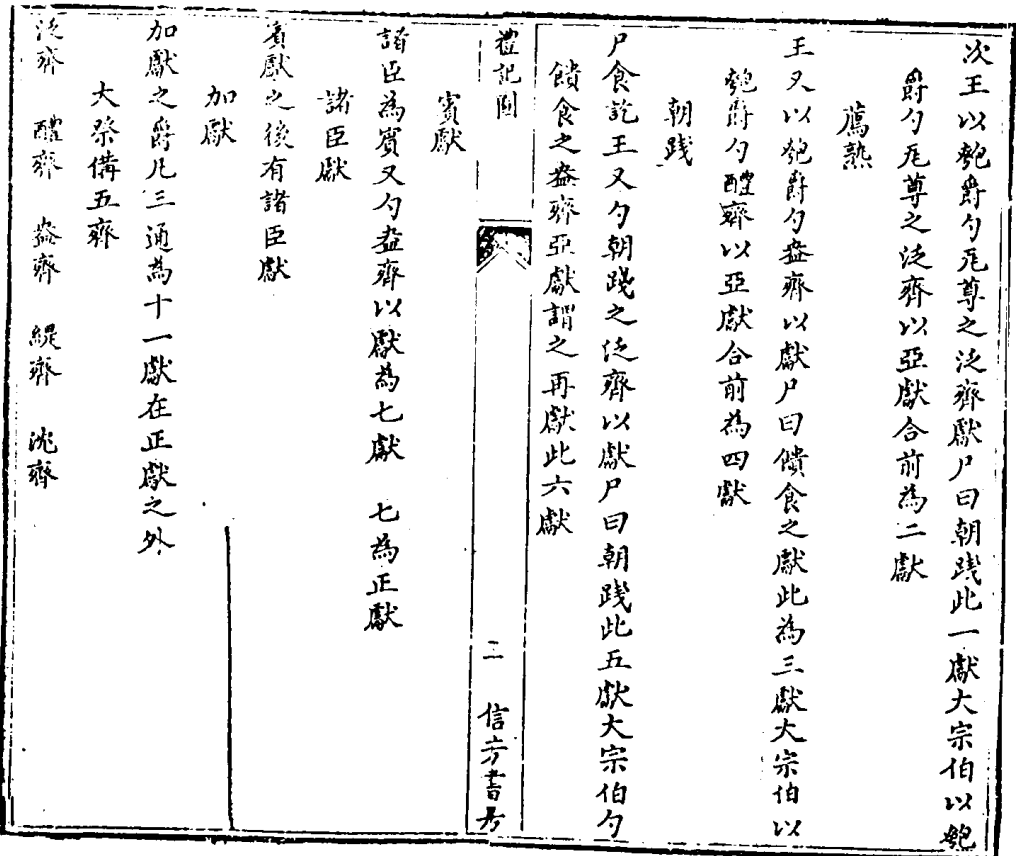 次王以匏爵勺瓦尊之泛齊獻尸曰朝踐此一獻大宗伯以匏
爵勺瓦尊之泛齊以亞獻合前為二獻
薦熟
王又以匏爵勺盎齊以獻尸曰饋食之獻此為三獻大宗伯以
匏爵勺醴齊以亞獻合前為四獻
朝踐
尸食訖王又勺朝踐之泛齊以獻尸曰朝踐此五獻大宗伯勺
饋食之盎齊亞獻謂之再獻此六獻
禮記圖
二
信芳書房
賓獻
諸臣為賓又勺盎齊以獻為七獻　七為正獻
諸臣獻
賓獻之後有諸臣獻
加獻
加獻之爵凡三通為十一獻在正獻之外
大祭備五齊
泛齊　醴齊　盎齊　緹齊　沈齊